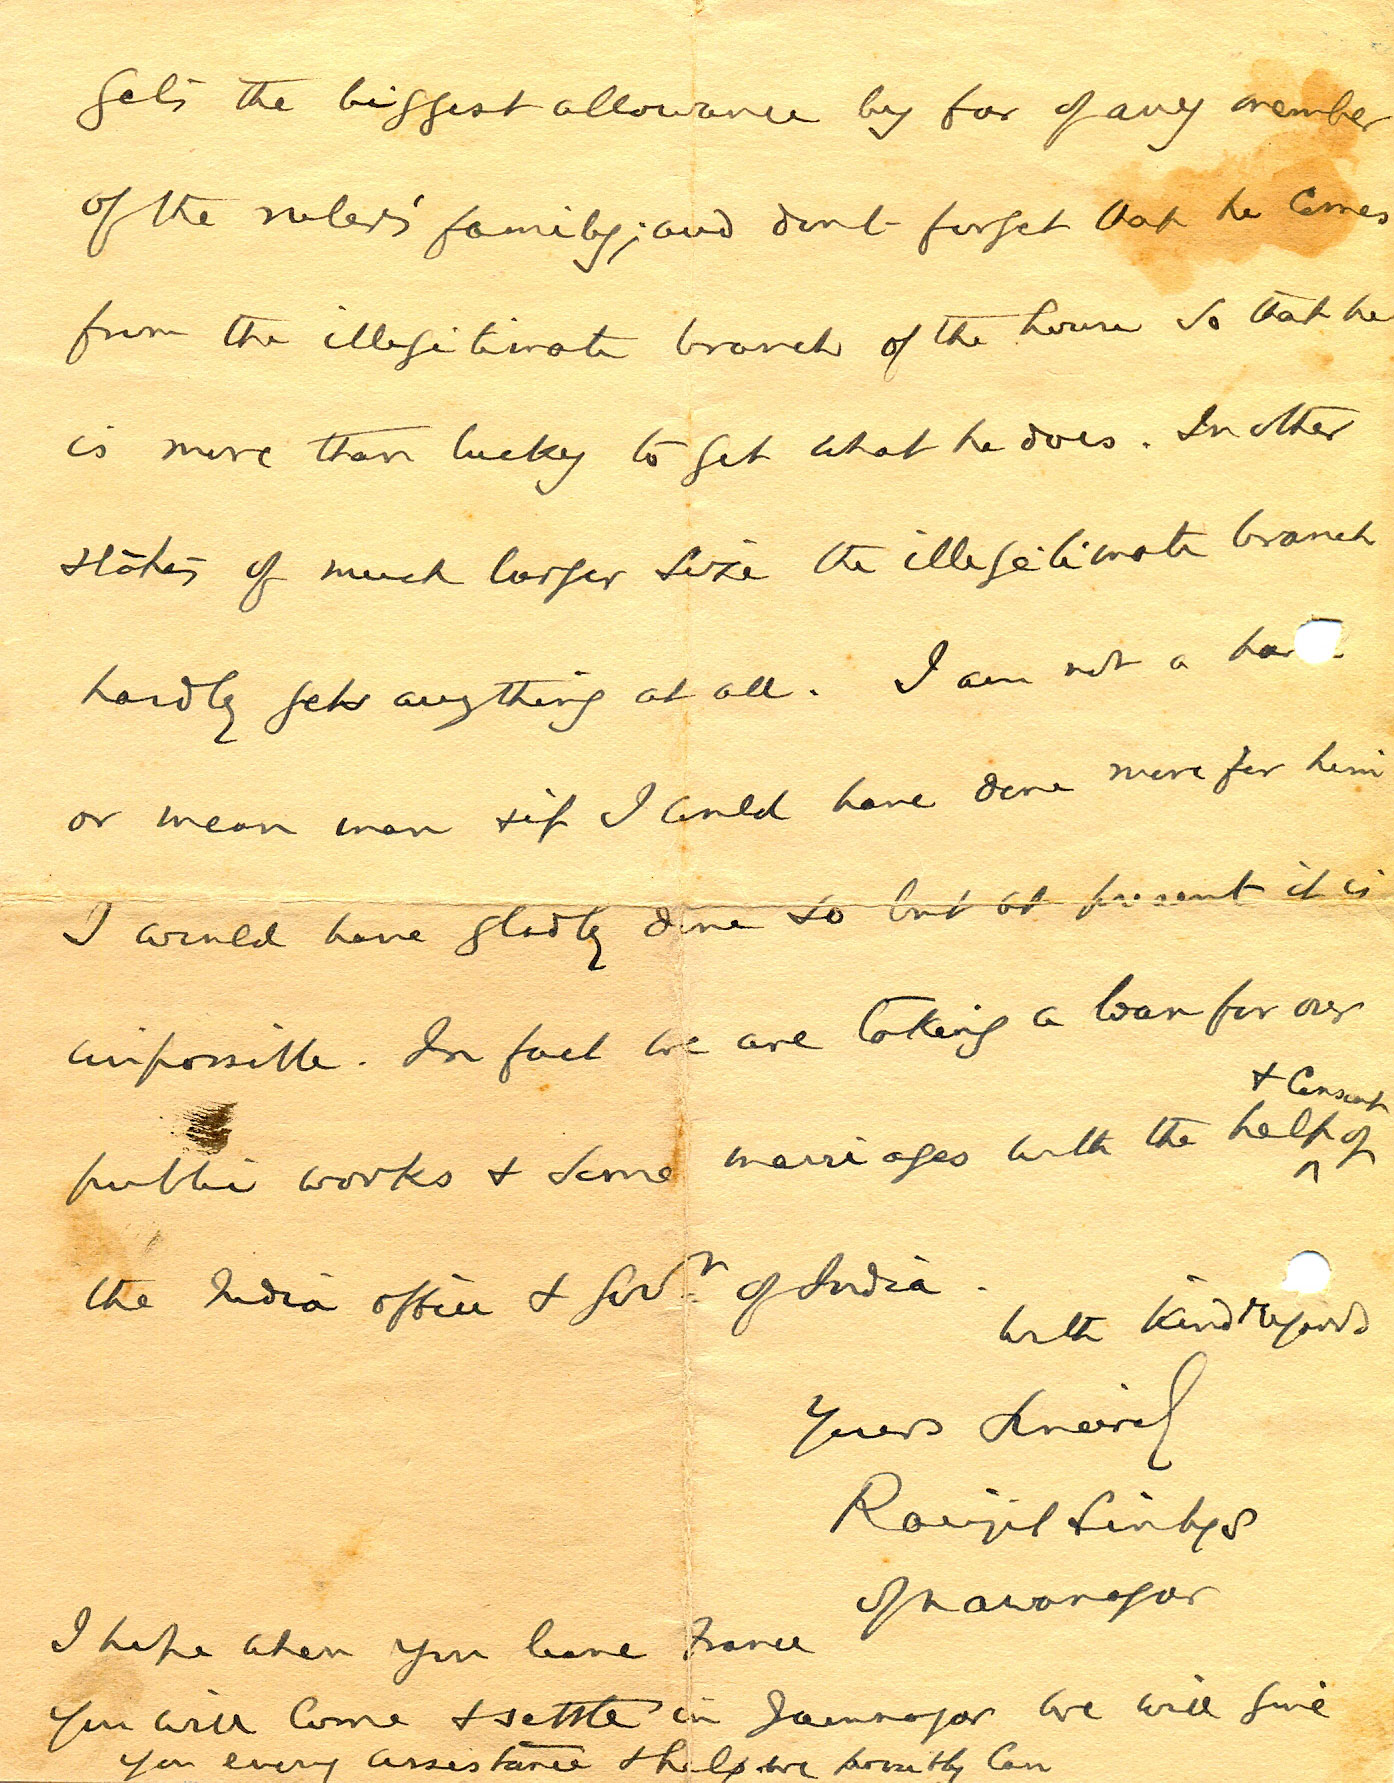 gets the biggest allowance by far of any member
of the ruler's family; and dont forget that he comes
from the illegitimate branch of the house so that he
is more than lucky to get what he does. In other
states of much larger size the illegitimate branch
hardly gets anything at all. I am not a
or mean man & if I could have done more for him
I would have gladly done so but at present it is
impossible. In fact we are taking a loan for our
& consent
public works & some marriages with the help of
the India office & Govt. of India.
with kind regards
Yours
Ranjitsinhji
of Nawanagar
I hope when you leave France
you will come & settle in Jamnagar we will give
you every assistance & help we possibly can